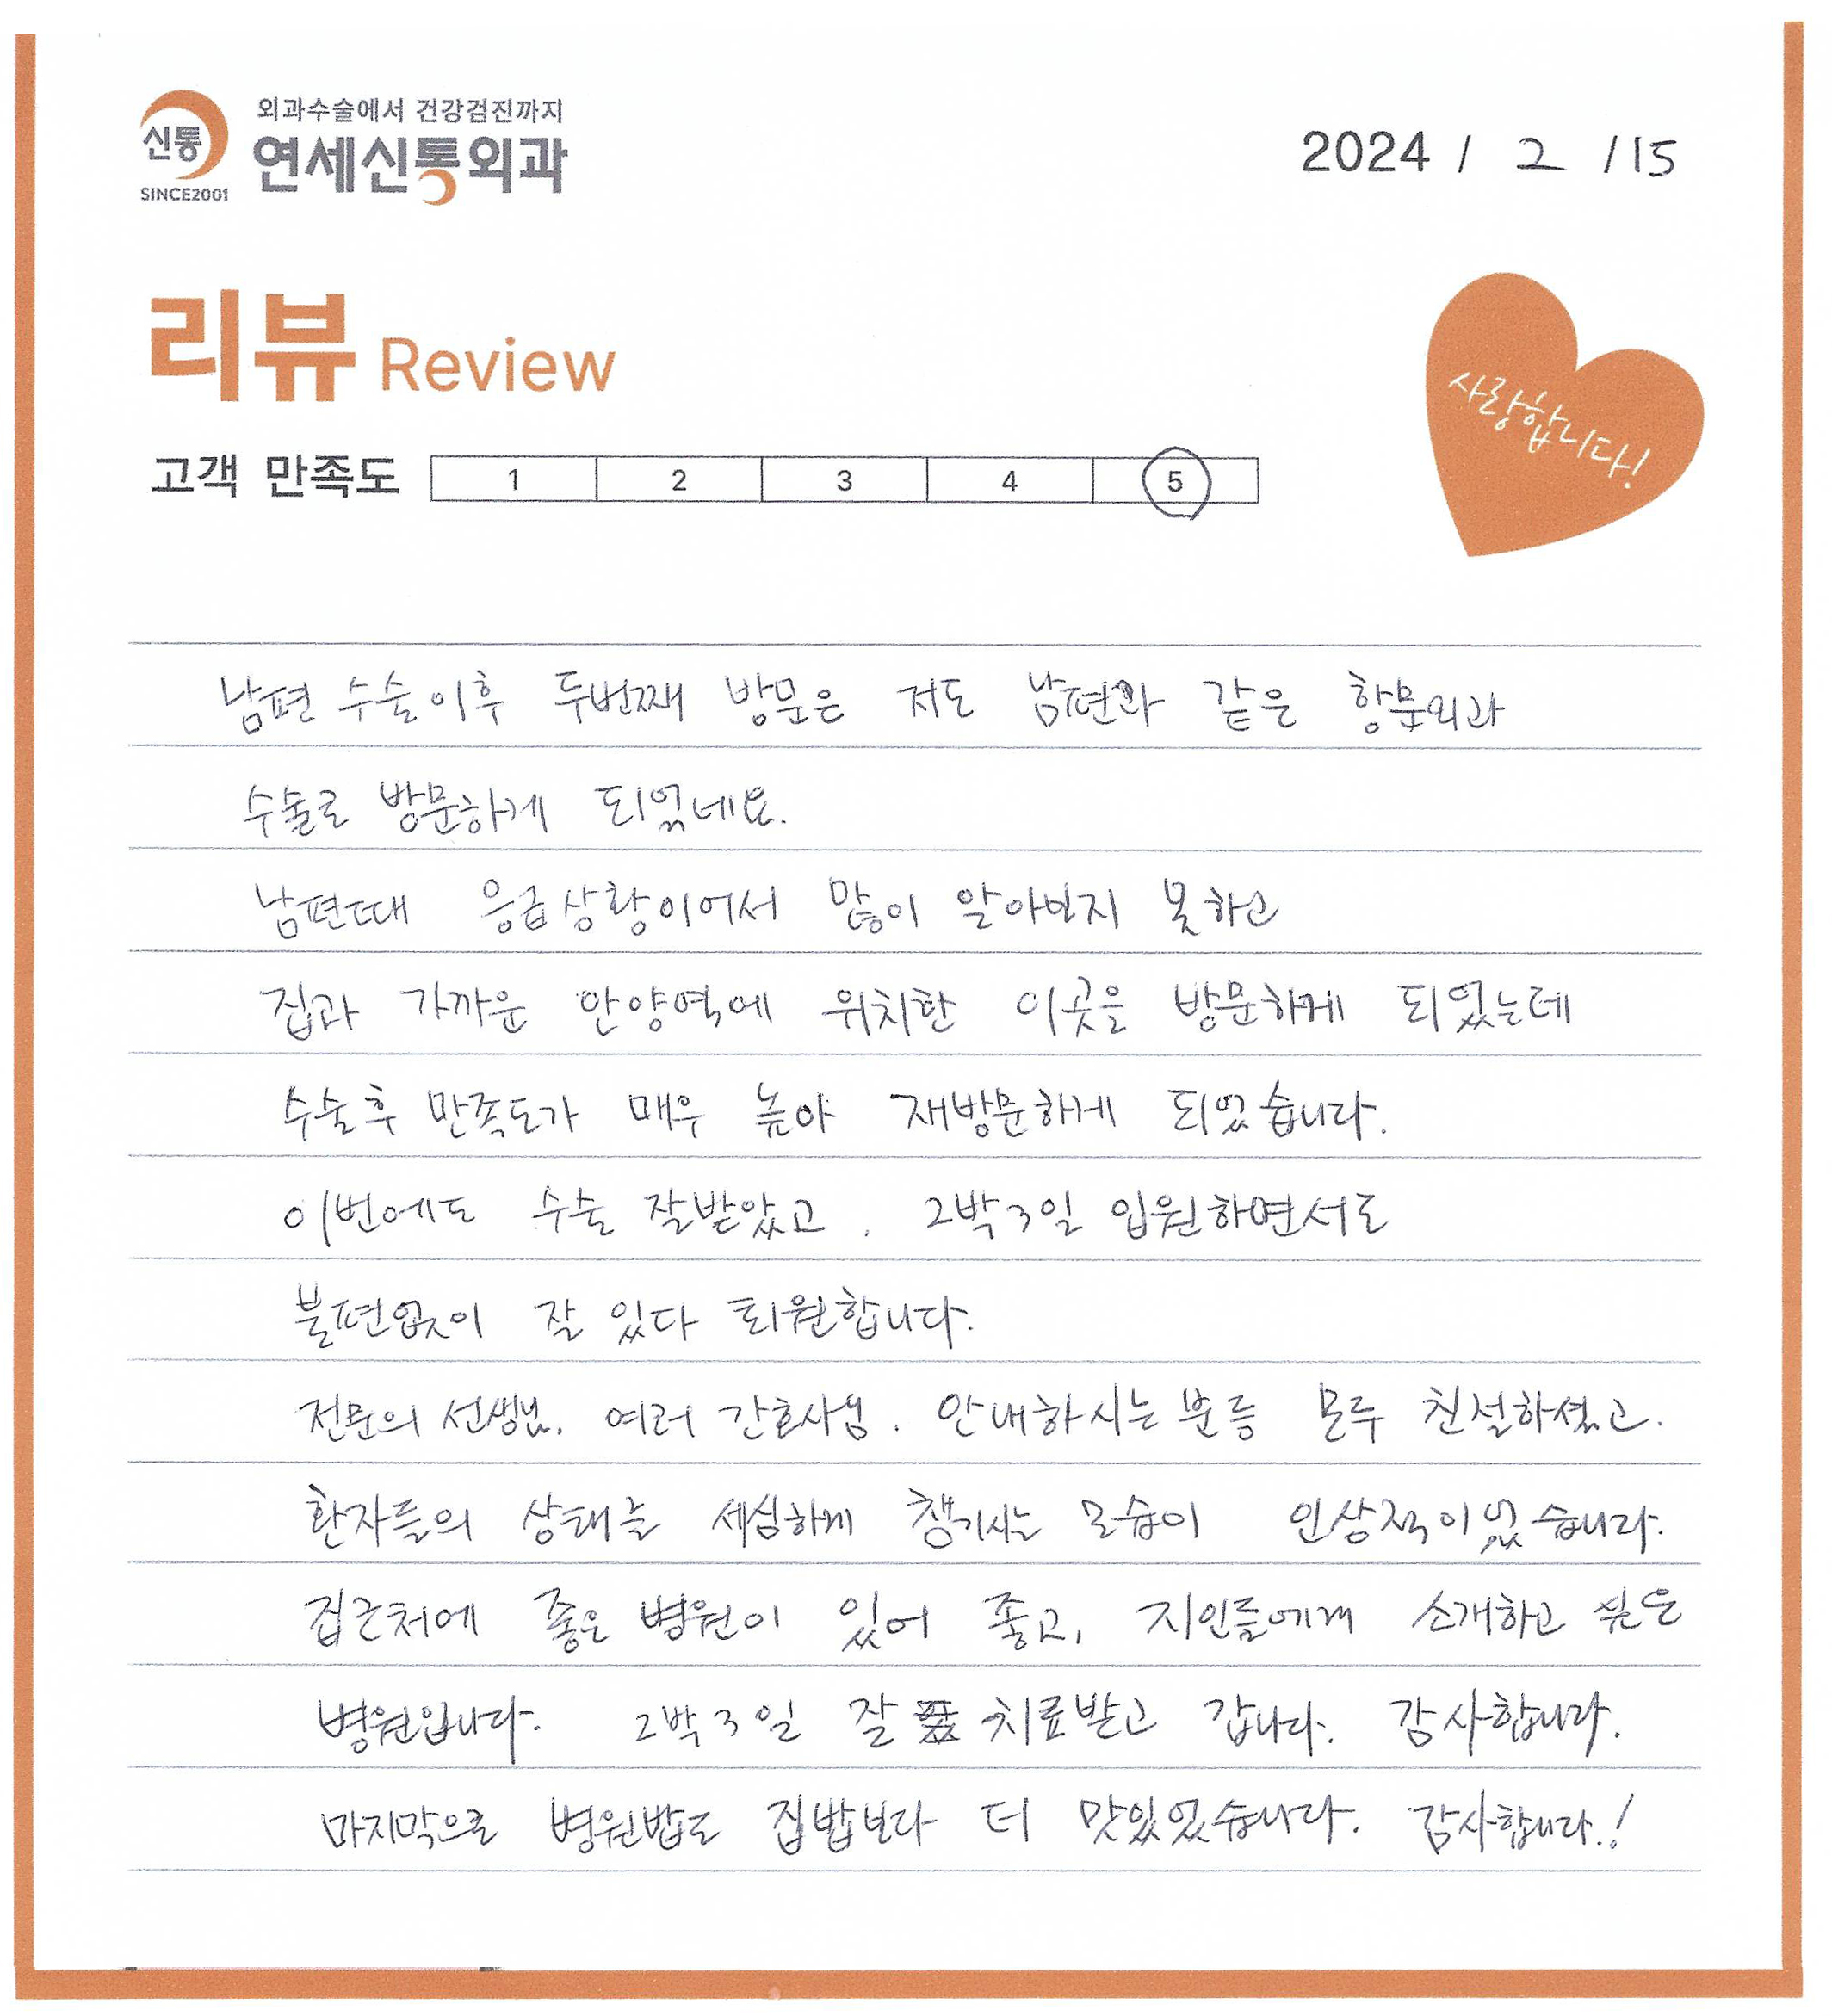 신통
SINCE2001
외과수술에서 건강검진까지
연세신통외과
2024 / 2 / 15
리뷰 Review
사랑합니다!
고객 만족도 1 2 3 4 5
남편 수술이후 두번째 방문은 저도 남편과 같은 항문외과
수술로 방문하게 되었네요.
남편때 응급상황이어서 많이 알아보지 못하고
집과 가까운 안양역에 위치한 이곳을 방문하게 되었는데
수술후 만족도가 매우 높아 재방문하게 되었습니다.
이번에도 수술 잘받았고, 2박3일 입원하면서도
불편없이 잘 있다 퇴원합니다.
전문의 선생님, 여러 간호사님, 안내하시는 분등 모두 친절하셨고,
환자들의 상태를 세심하게 챙기시는 모습이 인상적이었습니다.
집근처에 좋은 병원이 있어 좋고, 지인들에게 소개하고 싶은
병원입니다. 2박3일 잘 치료받고 갑니다. 감사합니다.
마지막으로 병원밥도 집밥보다 더 맛있었습니다. 감사합니다.!